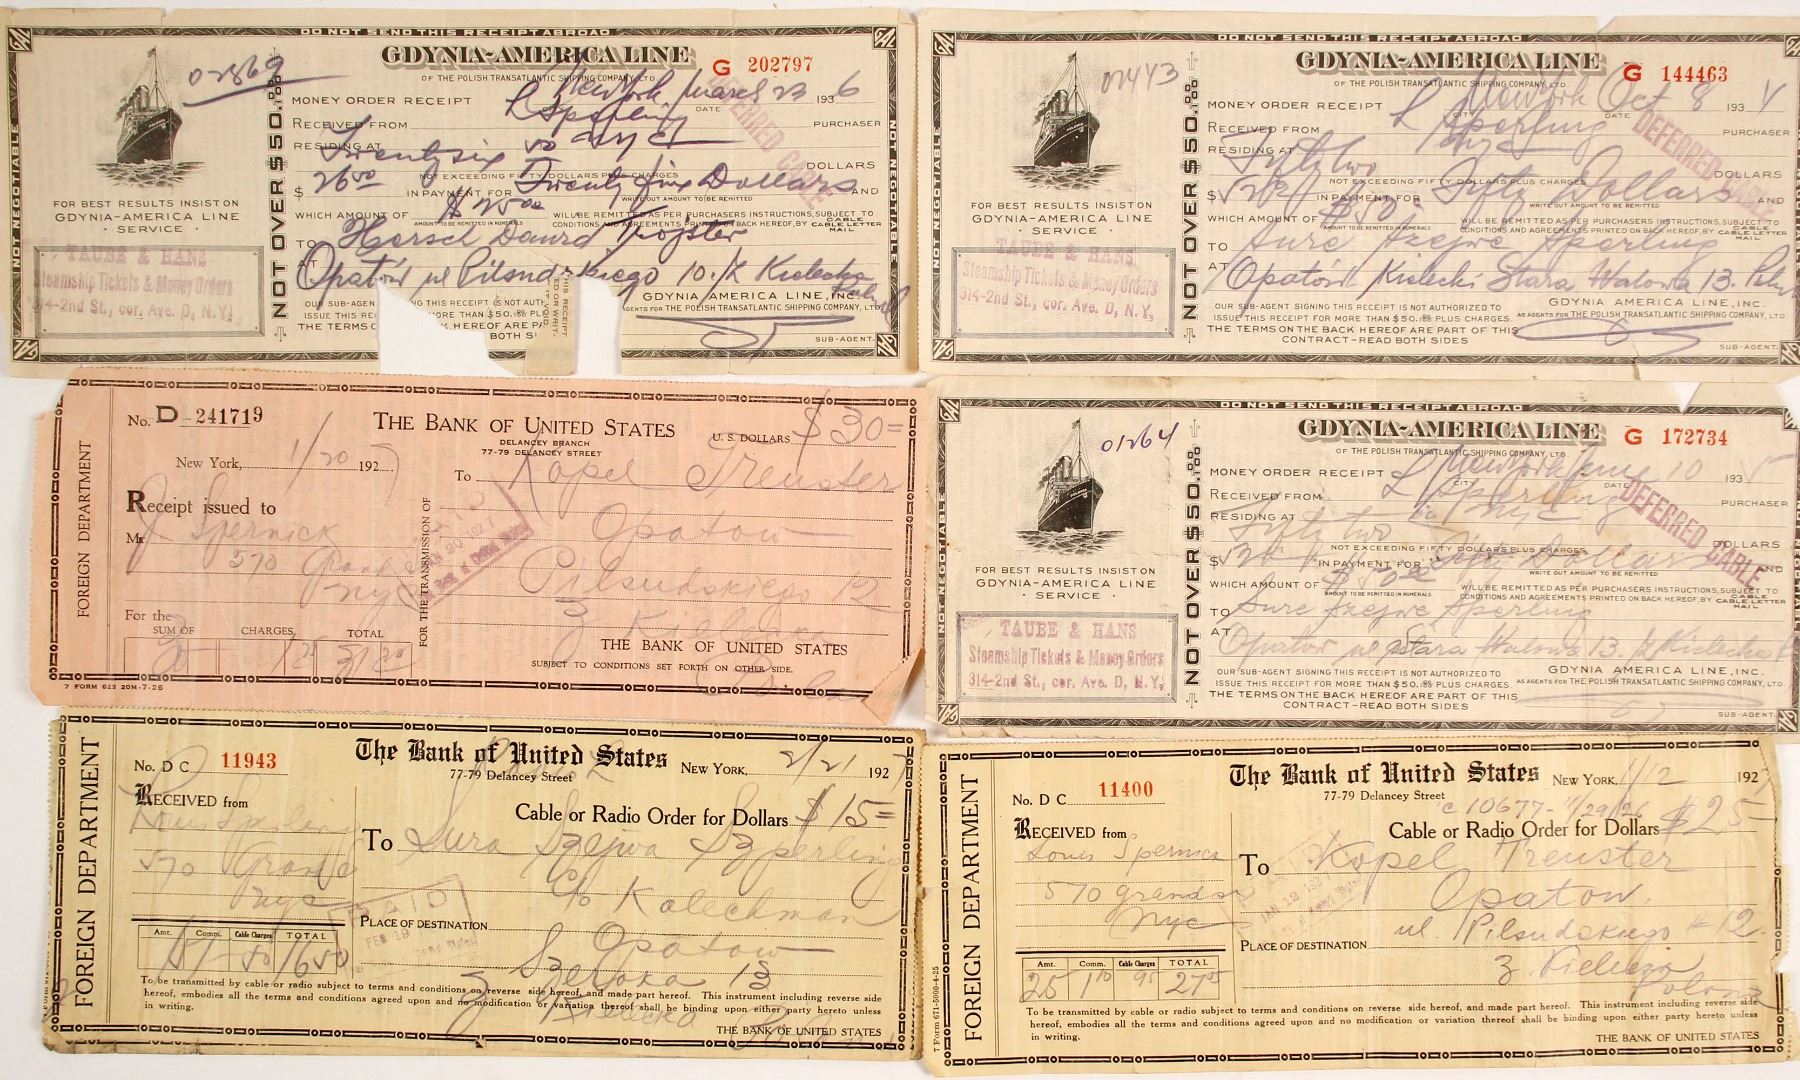 DO NOT SEND THIS RECEIPT ABROAD
GDYNIA-AMERICA LINE
OF THE POLISH TRANSATLANTIC SHIPPING COMPANY, LTD.
G 202797
02869
MONEY ORDER RECEIPT New York, March 23 1936
CITY DATE
RECEIVED FROM L Sperling PURCHASER
RESIDING AT nyc
Twenty six 50 DOLLARS
NOT EXCEEDING FIFTY DOLLARS PLUS CHARGES
$ 26 50 IN PAYMENT FOR Twenty five Dollars AND
WRITE OUT AMOUNT TO BE REMITTED
WHICH AMOUNT OF $ 25 00 WILL BE REMITTED AS PER PURCHASERS INSTRUCTIONS, SUBJECT TO
AMOUNT TO BE REMITTED IN NUMERALS CONDITIONS AND AGREEMENTS PRINTED ON BACK HEREOF, BY CABLE CABLE LETTER MAIL
TO Hersch Dawid
AT Opatów ul Pilsudskiego 10.
DEFERRED CABLE
NOT NEGOTIABLE
NOT OVER $50.00
NOT NEGOTIABLE
FOR BEST RESULTS INSIST ON
GDYNIA-AMERICA LINE
· SERVICE ·
TAUBE & HANS
Steamship Tickets & Money Orders
314-2nd St., cor. Ave. D, N.Y.
OUR SUB-AGEN ING THIS RECEIPT IS NOT AUTH
ISSUE THIS REC ORE THAN $50.00 PL
THE TERMS K HEREOF ARE PA
BOTH SI
GDYNIA AMERICA LINE, INC.
AGENTS FOR THE POLISH TRANSATLANTIC SHIPPING COMPANY, LTD.
SUB-AGENT.
DO NOT SEND THIS RECEIPT ABROAD
GDYNIA-AMERICA LINE
OF THE POLISH TRANSATLANTIC SHIPPING COMPANY, LTD.
G 144463
02443
MONEY ORDER RECEIPT New York Oct 8 193
CITY DATE
RECEIVED FROM L Sperling PURCHASER
RESIDING AT nyc
Fifty two DOLLARS
NOT EXCEEDING FIFTY DOLLARS PLUS CHARGES
$ 52 IN PAYMENT FOR Fifty Dollars AND
WRITE OUT AMOUNT TO BE REMITTED
WHICH AMOUNT OF $50 WILL BE REMITTED AS PER PURCHASERS INSTRUCTIONS, SUBJECT TO
AMOUNT TO BE REMITTED IN NUMERALS CONDITIONS AND AGREEMENTS PRINTED ON BACK HEREOF, BY CABLE CABLE LETTER MAIL
TO Sure Szejwe Sperling
AT Opatów Kielecki Stara Walowa 13.
DEFERRED CABLE
NOT NEGOTIABLE
NOT OVER $50.00
FOR BEST RESULTS INSIST ON
GDYNIA-AMERICA LINE
· SERVICE ·
TAUBE & HANS
Steamship Tickets & Money Orders
314-2nd St., cor. Ave. D, N.Y.
OUR SUB-AGENT SIGNING THIS RECEIPT IS NOT AUTHORIZED TO
ISSUE THIS RECEIPT FOR MORE THAN $50.00 PLUS CHARGES.
THE TERMS ON THE BACK HEREOF ARE PART OF THIS
CONTRACT-READ BOTH SIDES
GDYNIA AMERICA LINE, INC.
AS AGENTS FOR THE POLISH TRANSATLANTIC SHIPPING COMPANY, LTD.
SUB-AGENT.
FOREIGN DEPARTMENT
No. D-241719
THE BANK OF UNITED STATES
DELANCEY BRANCH
77-79 DELANCEY STREET
U. S. DOLLARS $30=
New York, 1/20 192
To Kopel Treuster
Opatow
Pilsudskiego 12
Z Kielecka
Receipt issued to
Mr J. Spernick
570 Grand
nyc
FOR THE TRANSMISSION OF
PAID
JAN 20 1927
For the
SUM OF CHARGES TOTAL
30 1 25 31 25
THE BANK OF UNITED STATES
SUBJECT TO CONDITIONS SET FORTH ON OTHER SIDE.
7 FORM 623 20M-7-26
DO NOT SEND THIS RECEIPT ABROAD
GDYNIA-AMERICA LINE
OF THE POLISH TRANSATLANTIC SHIPPING COMPANY, LTD.
G 172734
01264
MONEY ORDER RECEIPT New York 10 193
CITY DATE
RECEIVED FROM L Sperling PURCHASER
RESIDING AT nyc
Fifty two DOLLARS
NOT EXCEEDING FIFTY DOLLARS PLUS CHARGES
$ IN PAYMENT FOR Dollars AND
WRITE OUT AMOUNT TO BE REMITTED
WHICH AMOUNT OF $50 00 WILL BE REMITTED AS PER PURCHASERS INSTRUCTIONS, SUBJECT TO
AMOUNT TO BE REMITTED IN NUMERALS CONDITIONS AND AGREEMENTS PRINTED ON BACK HEREOF, BY CABLE CABLE LETTER MAIL
TO Sure Szejwe Sperling
AT Opatów ul Stara Walowa 13.
DEFERRED CABLE
NOT NEGOTIABLE
NOT OVER $50.00
FOR BEST RESULTS INSIST ON
GDYNIA-AMERICA LINE
· SERVICE ·
TAUBE & HANS
Steamship Tickets & Money Orders
314-2nd St., cor. Ave. D, N.Y.
OUR SUB-AGENT SIGNING THIS RECEIPT IS NOT AUTHORIZED TO
ISSUE THIS RECEIPT FOR MORE THAN $50.00 PLUS CHARGES
THE TERMS ON THE BACK HEREOF ARE PART OF THIS
CONTRACT-READ BOTH SIDES
GDYNIA AMERICA LINE, INC.
AS AGENTS FOR THE POLISH TRANSATLANTIC SHIPPING COMPANY, LTD.
SUB-AGENT.
FOREIGN DEPARTMENT
No. D C 11943
The Bank of United States
77-79 Delancey Street
NEW YORK, 2/21 1927
RECEIVED from
Louis Sperling
570 Grand
nyc
Cable or Radio Order for Dollars $15=
To Sura Szejwa Szperling
c/o Kalechman
PLACE OF DESTINATION Opatow
13
Z Kielecka
PAID
FEB 19
Amt. Comm. Cable Charges TOTAL
15 1 50 16 50
To be transmitted by cable or radio subject to terms and conditions on reverse side hereof, and made part hereof. This instrument including reverse side
hereof, embodies all the terms and conditions agreed upon and no modification or variation thereof shall be binding upon either party hereto unless
in writing.
THE BANK OF UNITED STATES
FOREIGN DEPARTMENT
No. D C 11400
The Bank of United States
77-79 Delancey Street
NEW YORK, 1/12 192
C 10677- 11/29/26
RECEIVED from
Louis Spernick
570 Grand St
nyc
Cable or Radio Order for Dollars $25-
To Kopel Treuster
Opatow.
PLACE OF DESTINATION ul Pilsudskiego #12.
Z. Kielecka
Poland
PAID
JAN 12
Amt. Comm. Cable Charges TOTAL
25 1 10 95 27 05
To be transmitted by cable or radio subject to terms and conditions on reverse side hereof, and made part hereof. This instrument including reverse side
hereof, embodies all the terms and conditions agreed upon and no modification or variation thereof shall be binding upon either party hereto unless
in writing.
THE BANK OF UNITED STATES
7 Form 671-5000-4-25